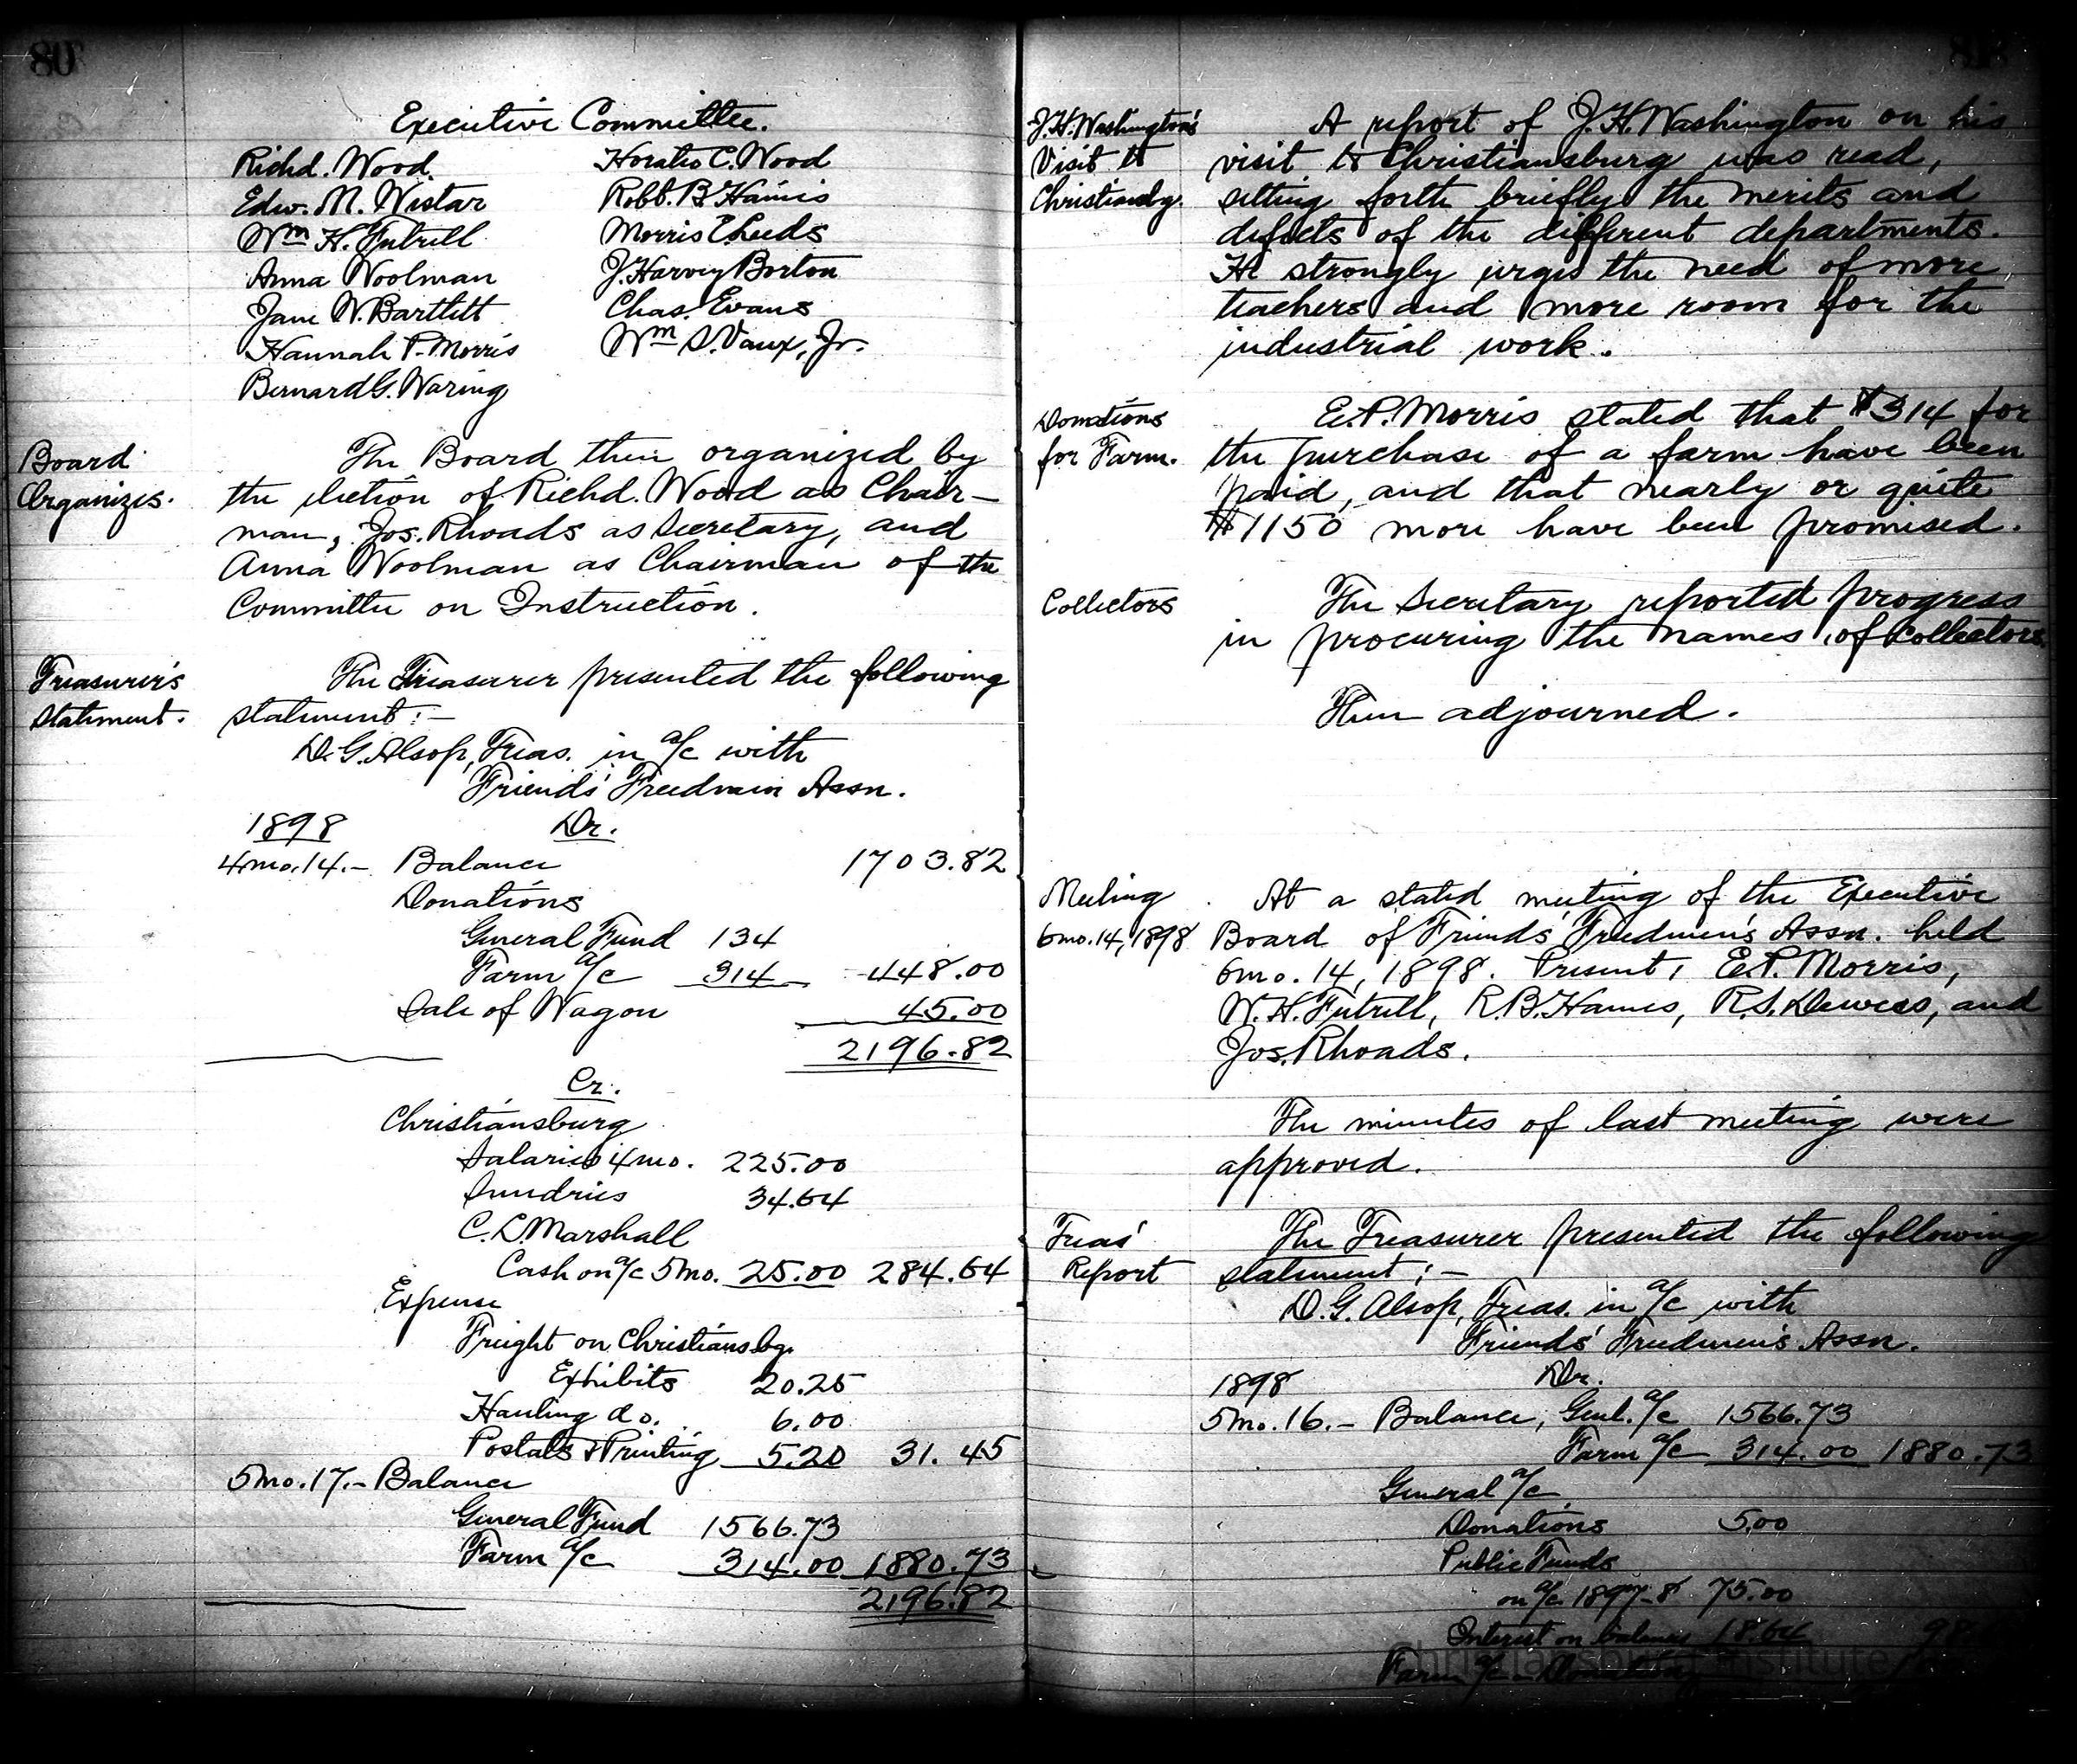 80
Executive Committee.
Richd. Wood. Horatio C. Wood
Edw. M. Wistar Robt. B. Haines
Wm H. Futrell Morris E. Leeds
Anna Woolman J. Harvey Borton
Jane W. Bartlett Chas. Evans
Hannah P. Morris Wm S. Vaux, Jr.
Bernard G. Waring
Board Organizes.
The Board then organized by
the election of Richd. Wood as Chair-
man, Jos. Rhoads as Secretary, and
Anna Woolman as Chairman of the
Committee on Instruction.
Treasurer's Statement.
The Treasurer presented the following
statement:-
D. G. Alsop, Treas. in a/c with
Friends' Freedmen Assn.
1898 Dr.
4mo. 14.- Balance 1703.82
Donations
General Fund 134
Farm a/c 314 448.00
Sale of Wagon 45.00
2196.82
Cr.
Christiansburg
Salaries 4mo. 225.00
Sundries 34.64
C. L. Marshall
Cash on a/c 5mo. 25.00 284.64
Expense
Freight on Christiansbg.
Exhibits 20.25
Hauling do. 6.00
Postals & Printing 5.20 31.45
5mo. 17.- Balance
General Fund 1566.73
Farm a/c 314.00 1880.73
2196.82
J. H. Washington's
Visit to
Christiansbg.
A report of J. H. Washington on his
visit to Christiansburg was read,
setting forth briefly the merits and
defects of the different departments.
He strongly urges the need of more
teachers and more room for the
industrial work.
Donations
for Farm.
E. P. Morris stated that $314 for
the purchase of a farm have been
paid, and that nearly or quite
$1150 more have been promised.
Collectors
The Secretary reported progress
in procuring the names of Collectors.
Then adjourned.
Meeting
6mo. 14, 1898
At a stated meeting of the Executive
Board of Friends' Freedmen's Assn. held
6mo. 14, 1898. Present, E. P. Morris,
W. H. Futrell, R. B. Haines, R. S. Dewees, and
Jos. Rhoads.
The minutes of last meeting were
approved.
Treas'
Report
The Treasurer presented the following
statement:-
D. G. Alsop, Treas. in a/c with
Friends' Freedmen's Assn.
1898 Dr.
5mo. 16.- Balance, Genl. a/c 1566.73
Farm a/c 314.00 1880.73
General a/c
Donations 5.00
Public Funds
on a/c 1897-8 75.00
Interest on balances 18.64 98.
Farm a/c
Christiansburg Institute